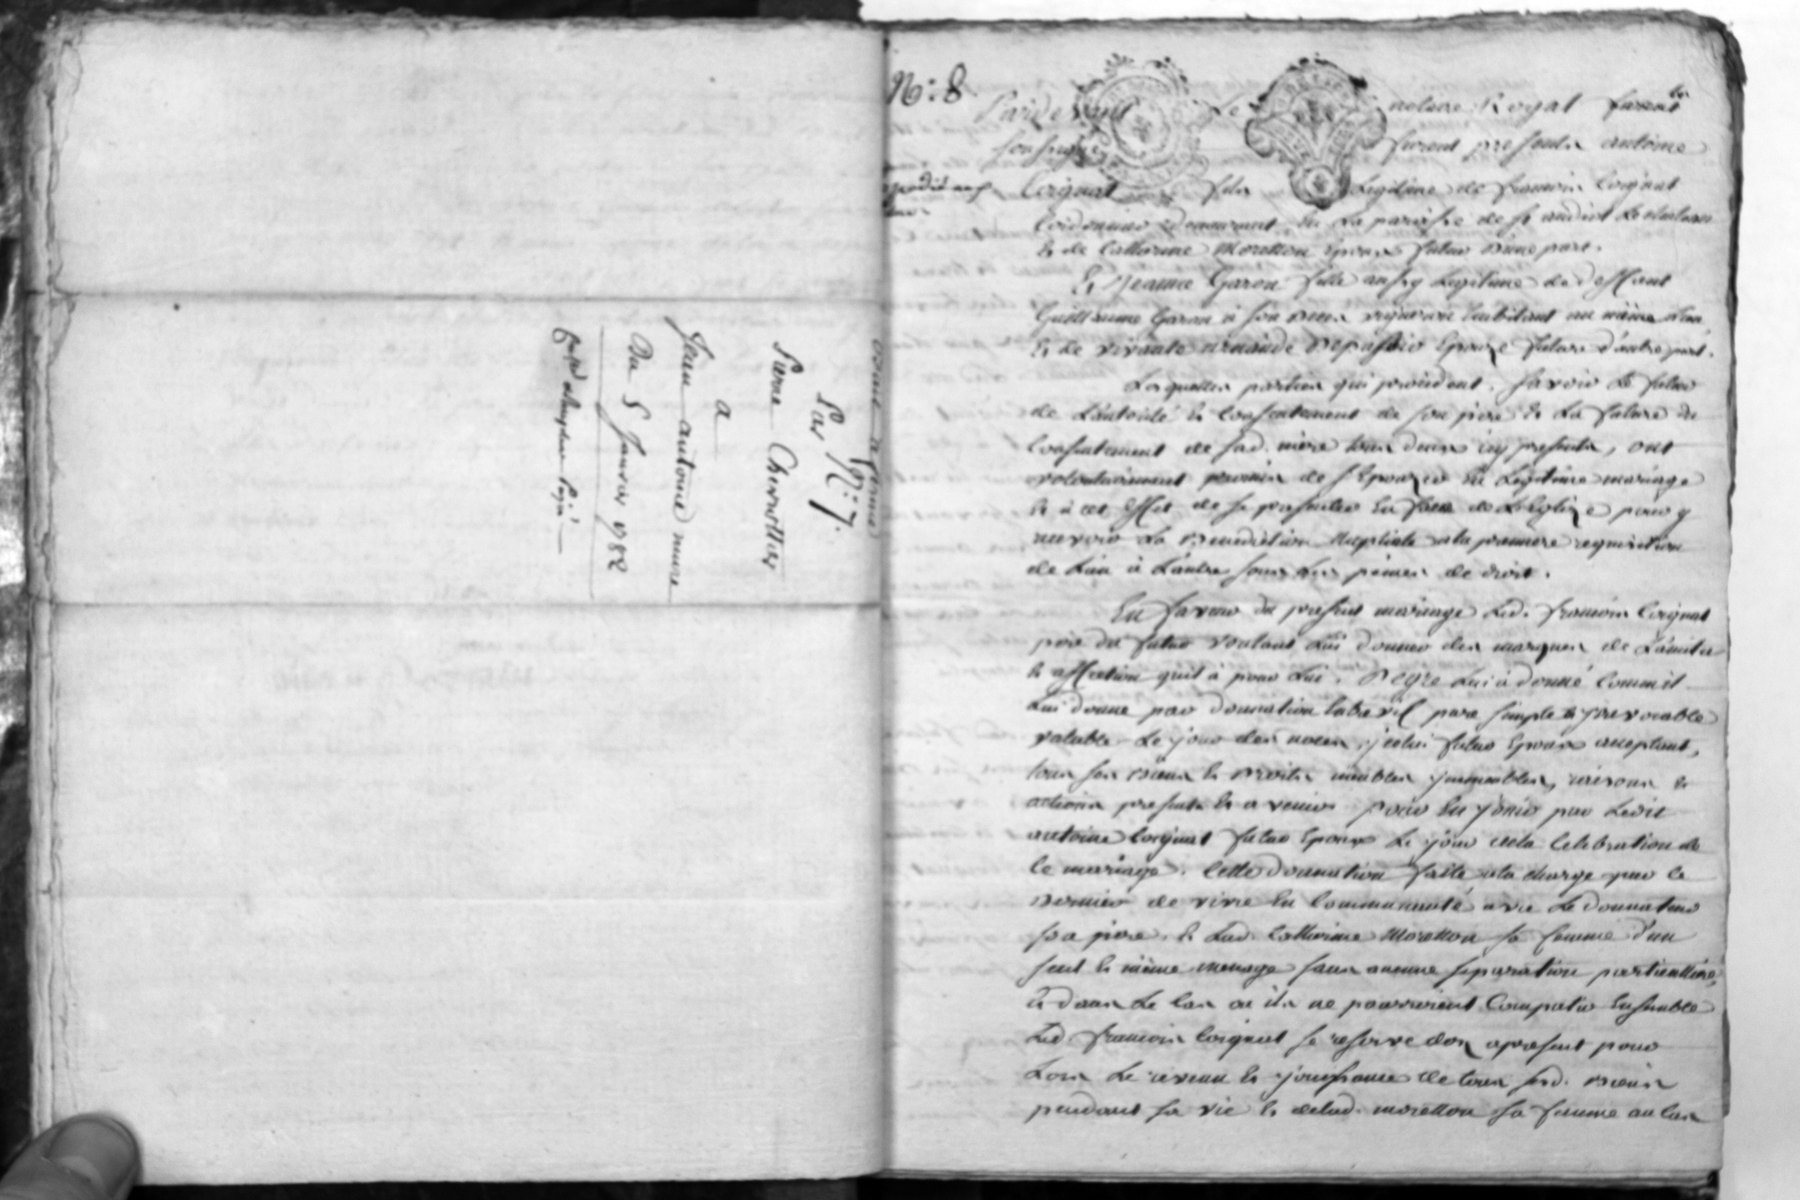 Par N.° 7.
Pierre Chervollier
a
Jean antoine mure
Du 5 Janvier 1782
N.° 8
Pardevant Le notaire Royal
soussigné furent presents antoine
Coignat fils Legitime de francois Coignat
Cordonnier demeurant en La paroisse de st andiol Le chateau
et de Catherine Moretton Epoux futur d'une part.
Et Jeanne Garon fille aussy Legitime de deffunt
Guillaume Garon a son vivant vigneron habitant au même
et de vivante Epouze future d'autre part.
Lesquelles parties qui procedent, savoir Le futur
de L'autorité et Consentement de son pere et La future du
Consentement de sad. mere tous deux icy presents, ont
volontairement promis de s'Epouzer En Legitime mariage
et à cet effet de se presenter En face de L'Eglize pour y
recevoir La Benediction Nuptiale a la premiere requisition
de L'un à L'autre sous Les peines de droit.
En faveur du present mariage Led. francois Coignat
pere du futur voulant Lui donner des marques de L'amitié
et affection qu'il à pour Lui, De gré Lui à donné Comme il
Lui donne par donnation Entrevif pure simple et irrevocable
valable Le jour des noces, icelui futur Epoux acceptant,
tous ses Biens et Droits meubles immeubles, raisons et
actions presents et a venir pour En jouir par Ledit
antoine Coignat futur Epoux Le jour de la Celebration de
Ce mariage. Cette donnation faite a la charge par Ce
Dernier de vivre En Communauté avec Le donnateur
son pere, et Lad. Catherine Moretton sa femme d'un
seul et même menage sans aucune separation particulliere,
Et dans Le Cas ou ils ne pourroient Compatir Ensemble
Led. francois Coignat se reserve des apresent pour
Lors Le revenu et jouissance de tous sesd. Biens
pendant sa vie et de lad. moretton sa femme au Cas